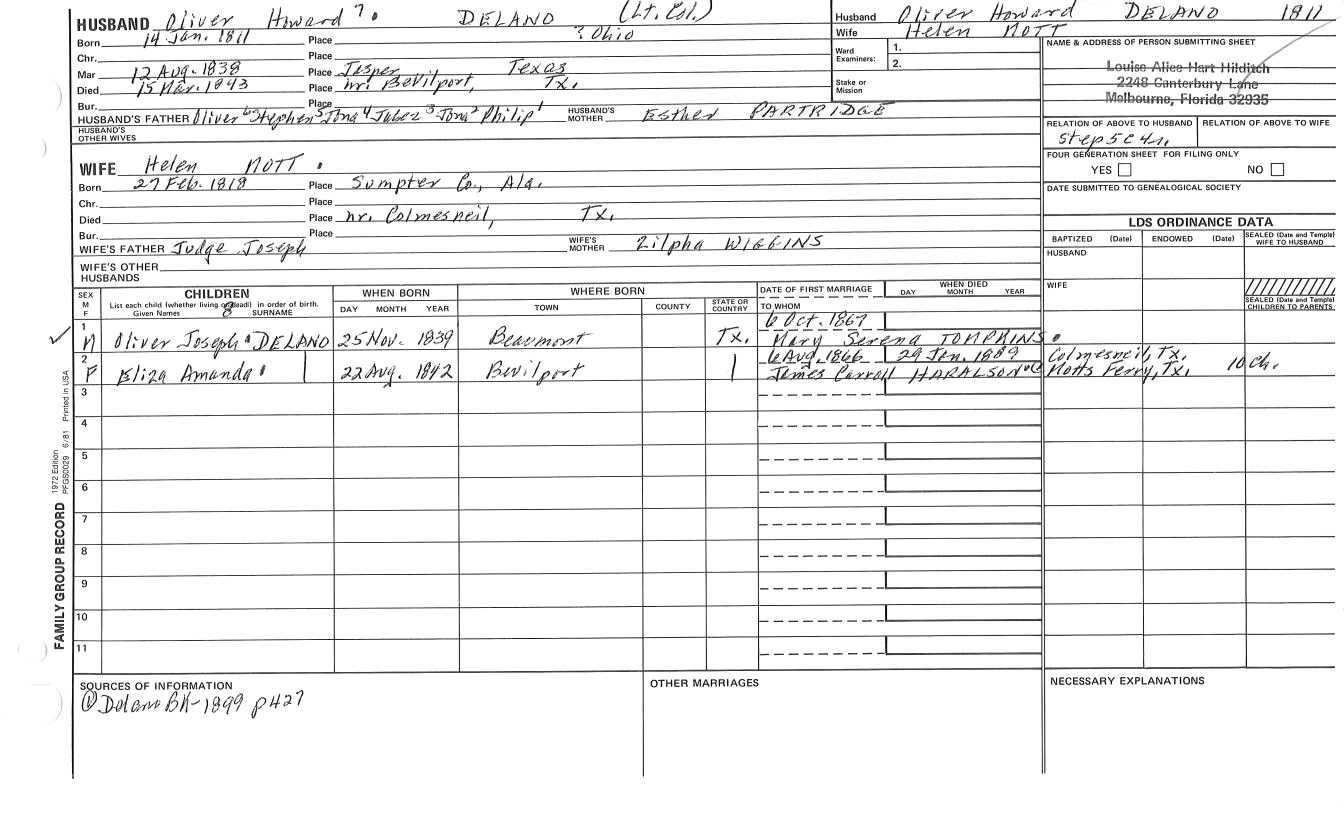 HUSBAND Oliver Howard 7. DELANO (Lt. Col.)
Born 14 Jan. 1811 Place ? Ohio
Chr. Place
Mar 12 Aug. 1838 Place Jasper Texas
Died 15 Mar. 1843 Place nr. Bevilport, Tx.
Bur. Place
HUSBAND'S FATHER Oliver 6 Stephen 5 Jona 4 Jabez 3 Jona 2 Philip 1 HUSBAND'S MOTHER Esther PARTRIDGE
HUSBAND'S OTHER WIVES
WIFE Helen NOTT .
Born 27 Feb. 1818 Place Sumpter Co., Ala.
Chr. Place
Died Place nr. Colmesneil, Tx.
Bur. Place
WIFE'S FATHER Judge Joseph WIFE'S MOTHER Zilpha WIGGINS
WIFE'S OTHER HUSBANDS
Husband Oliver Howard DELANO 1811
Wife Helen NOTT
Ward Examiners: 1.
2.
Stake or Mission
NAME & ADDRESS OF PERSON SUBMITTING SHEET
Louise Alice Hart Hilditch
2248 Canterbury Lane
Melbourne, Florida 32935
RELATION OF ABOVE TO HUSBAND RELATION OF ABOVE TO WIFE
FOUR GENERATION SHEET FOR FILING ONLY
YES NO
DATE SUBMITTED TO GENEALOGICAL SOCIETY
LDS ORDINANCE DATA
BAPTIZED (Date) ENDOWED (Date) SEALED (Date and Temple) WIFE TO HUSBAND
HUSBAND
WIFE
SEALED (Date and Temple) CHILDREN TO PARENTS
SEX M F
CHILDREN
List each child (whether living or dead) in order of birth.
Given Names 8 SURNAME
WHEN BORN
DAY MONTH YEAR
WHERE BORN
TOWN COUNTY STATE OR COUNTRY
DATE OF FIRST MARRIAGE
TO WHOM
WHEN DIED
DAY MONTH YEAR
1 M Oliver Joseph DELANO 25 Nov. 1839 Beaumont Tx. 6 Oct. 1867
Mary Serena TOMPKINS.
2 F Eliza Amanda 22 Aug. 1842 Bevilport 6 Aug. 1866 29 Jan. 1889 Colmesneil, Tx.
James Carroll HARALSON Notts Ferry, Tx. 10 Ch.
3
4
5
6
7
8
9
10
11
FAMILY GROUP RECORD 1972 Edition PFGS0029 6/81 Printed in USA
SOURCES OF INFORMATION
① Delano BK-1899 p427
OTHER MARRIAGES
NECESSARY EXPLANATIONS